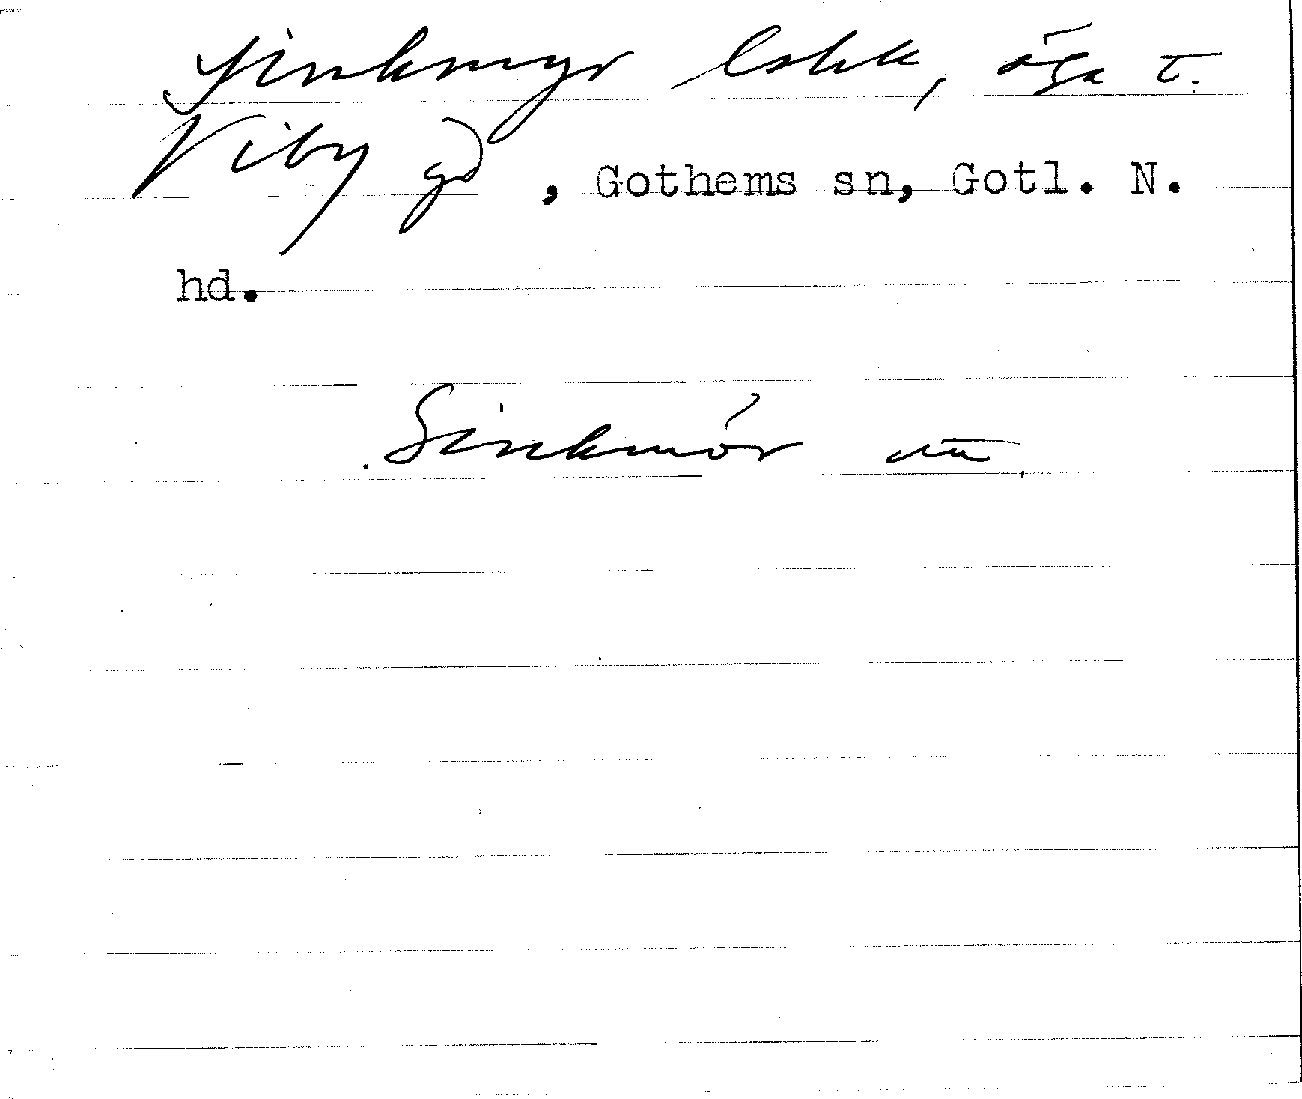 Sinkmyr lokk, äga t.
Viby gd, Gothems sn, Gotl. N.
hd.
Sinkmör